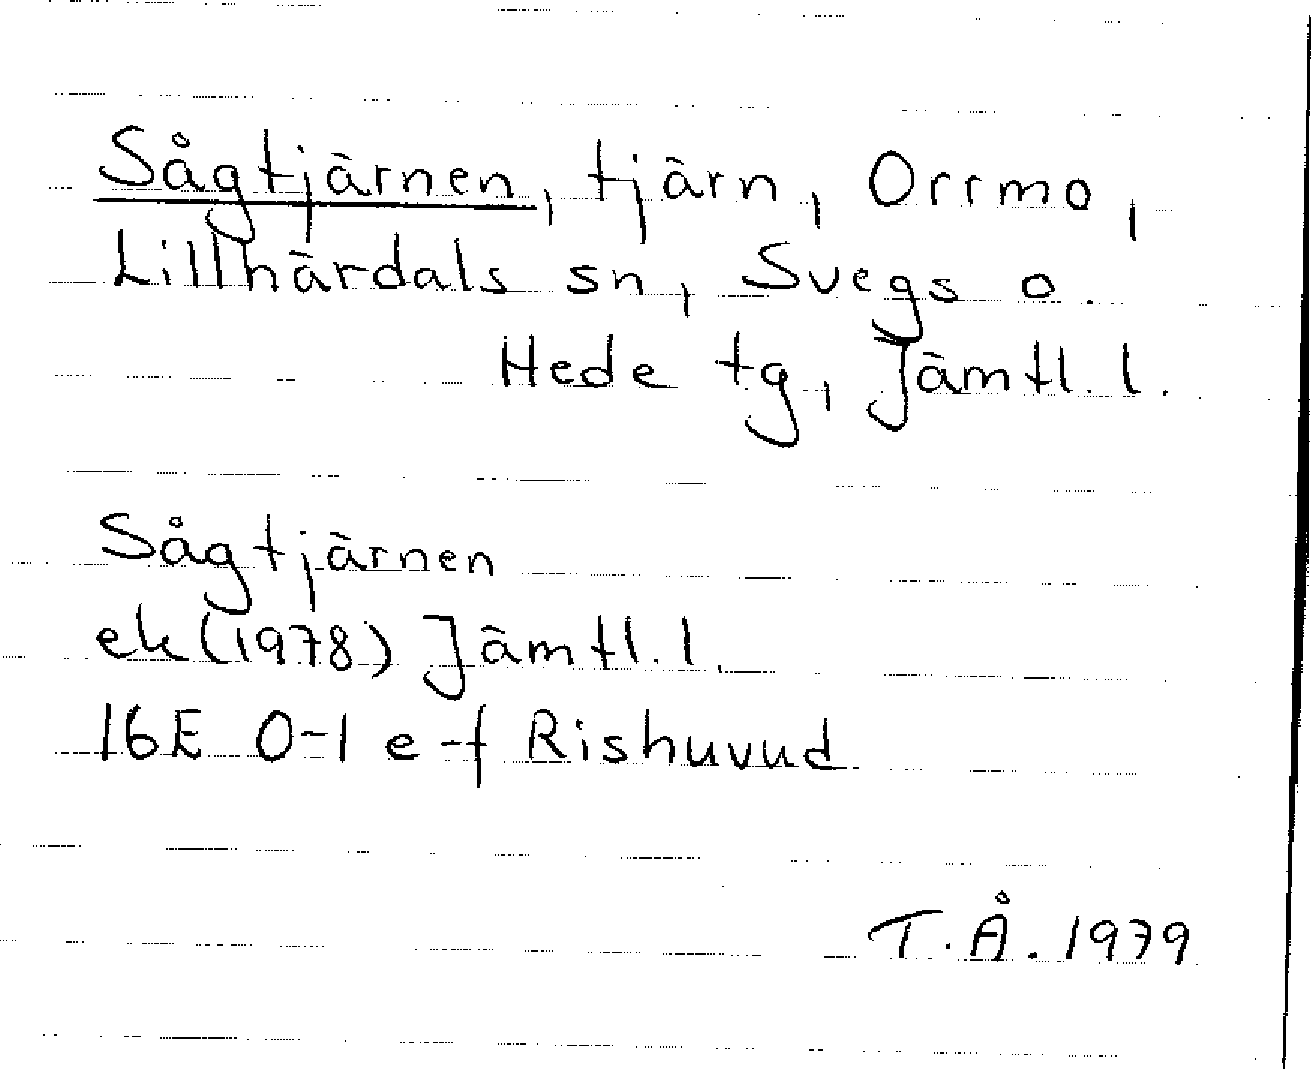 Sågtjärnen, tjärn, Orrmo,
Lillhärdals sn, Svegs o.
Hede tg, Jämtl. l.
Sågtjärnen
ek (1978) Jämtl. l.
16E 0-1 e-f Rishuvud
T.Å. 1979